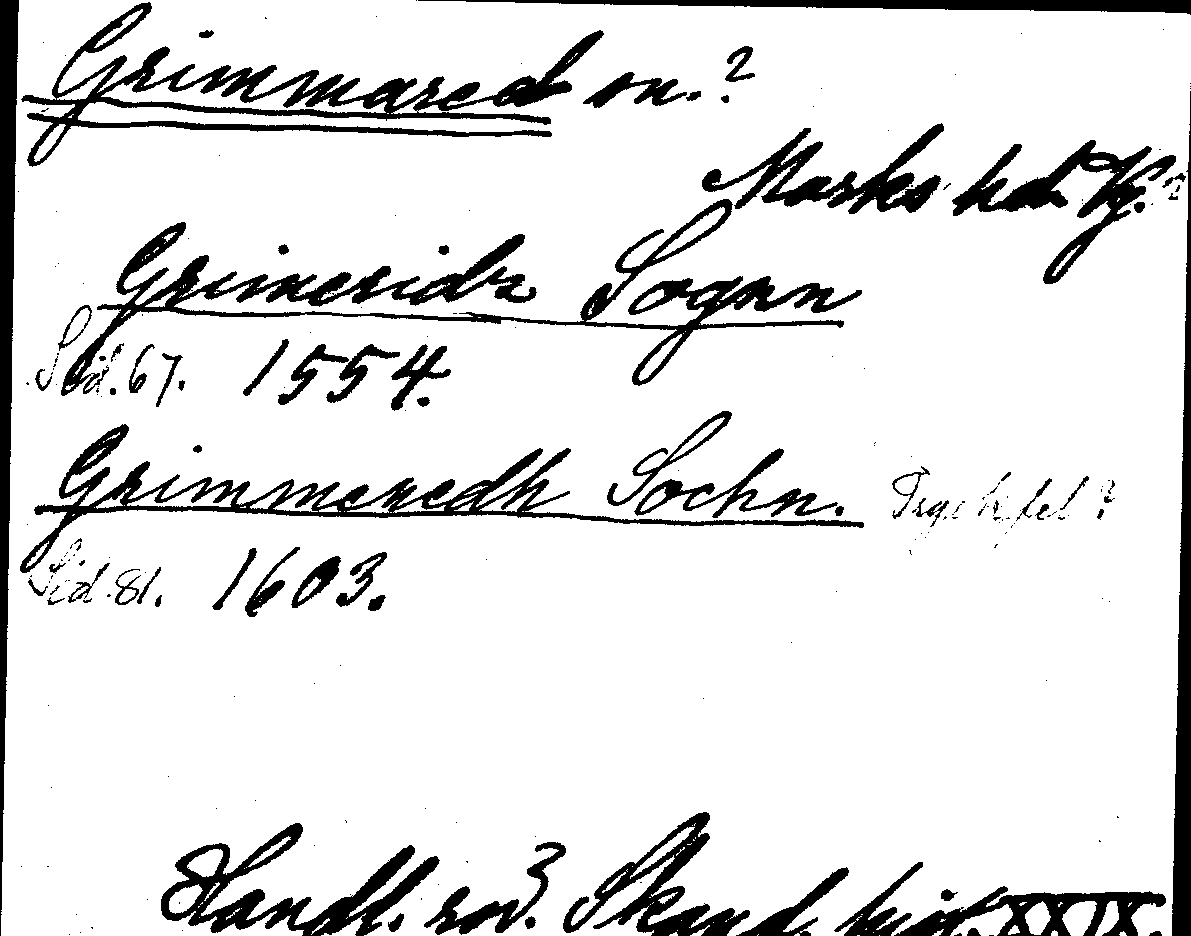 Grimmared sn.?
Marks hd Vg.?
Grimeridz Sognn
Sid. 67. 1554.
Grimmeredh Sochn. Tryckfel?
Sid. 81. 1603.
Handl. rör. Skand. hist. XXIX.